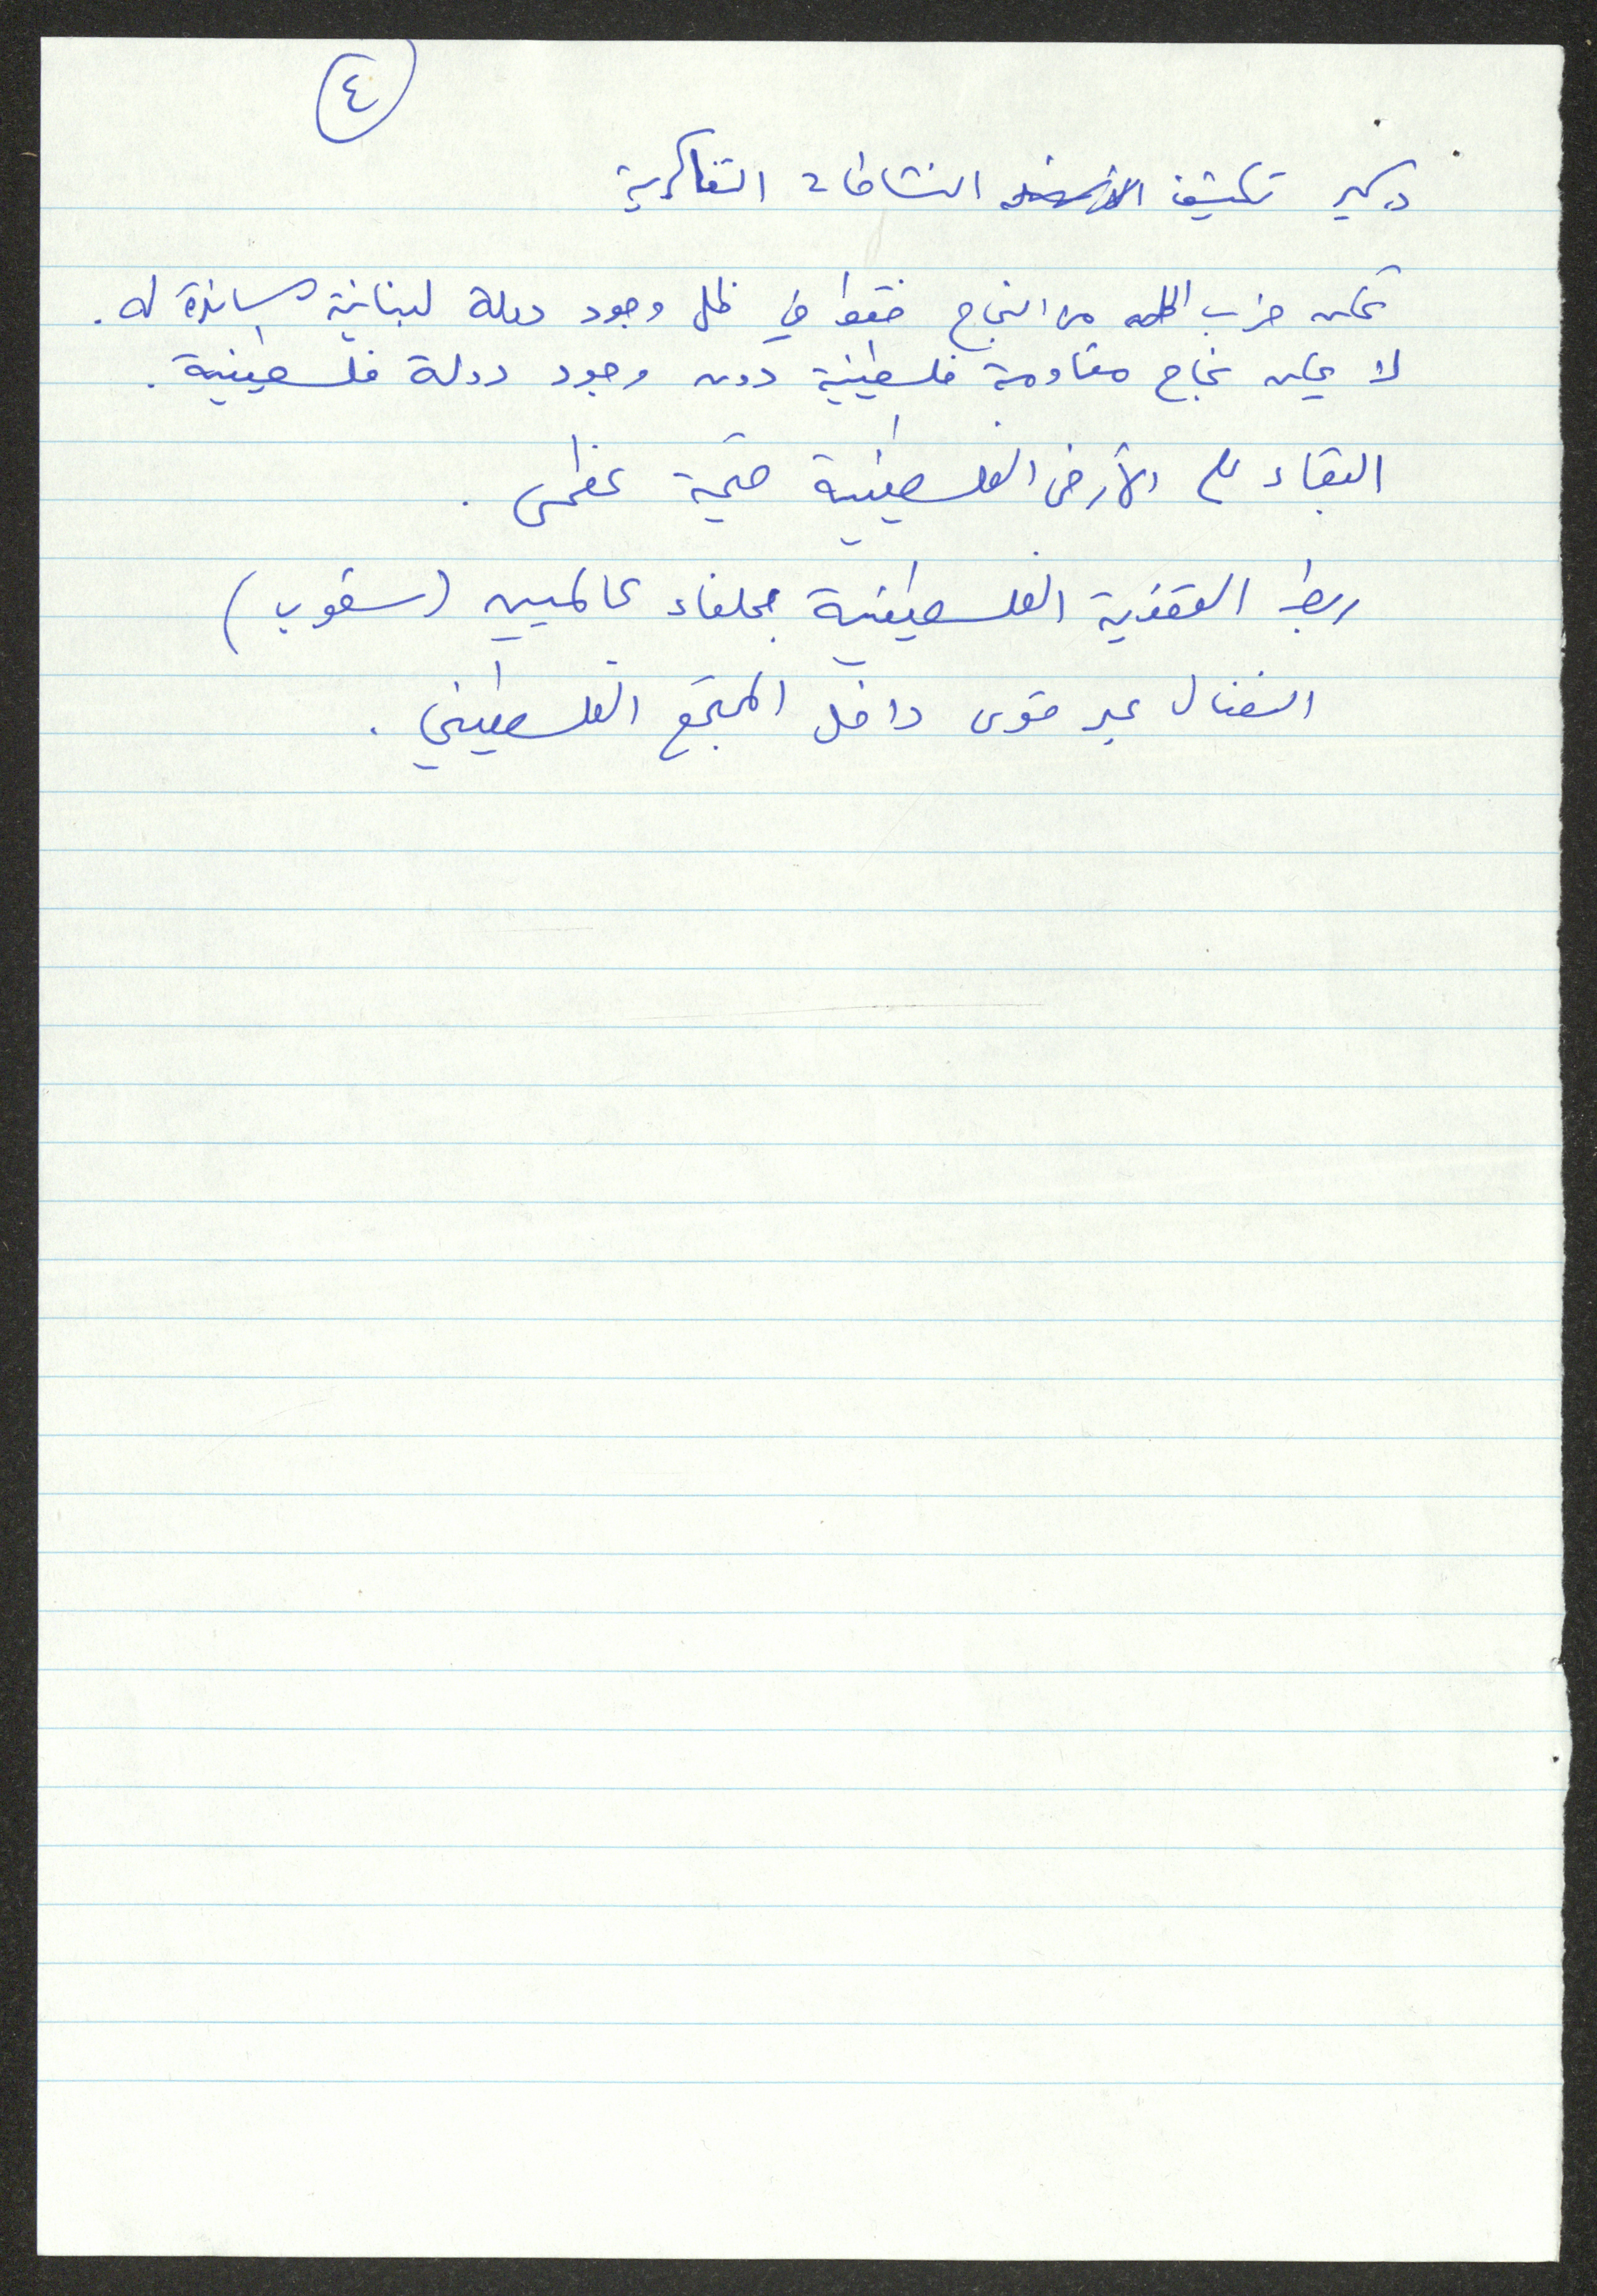 ٤
تكثيف النشاطات التفاكرية
تمكن حزب الله من النجاح فقط في ظل وجود دولة لبنانية مساندة له .
لا يمكن نجاح مقاومة فلسطينية دون وجود دولة فلسطينية .
البقاء على الأرض الفلسطينية قيمة عظمى .
ربط القضية الفلسطينية بحلفاء عالميين (شعوب)
النضال عبر قوى داخل المجتمع الفلسطيني .